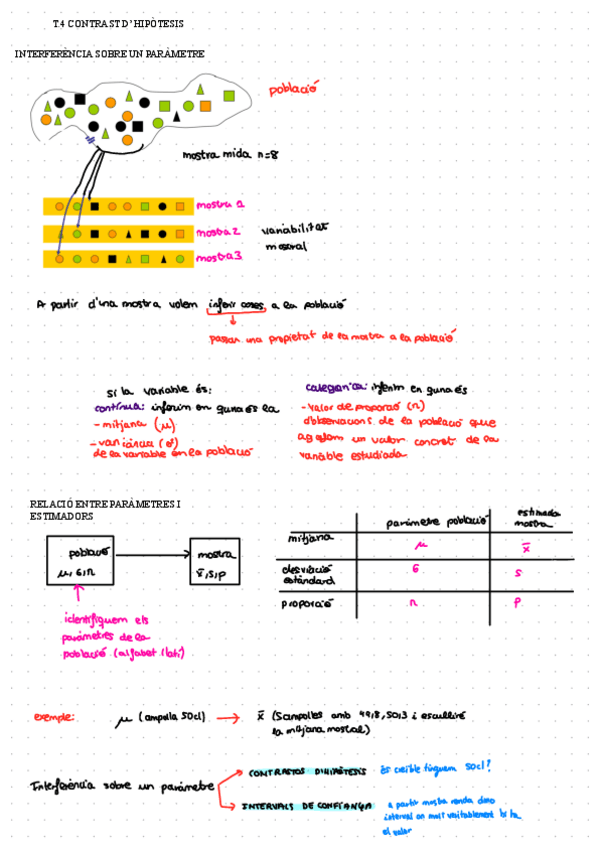 T.4 CONTRAST D'HIPÒTESIS
INTERFERÈNCIA SOBRE UN PARÀMETRE
població
mostra mida n=8
mostra 1
mostra 2
mostra 3
variabilitat
mostral
A partir d'una mostra volem inferir coses a la població
passar una propietat de la mostra a la població
si la variable és:
contínua: inferim en quna és la
- mitjana (μ)
- variància (σ²)
de la variable en la població
categòrica: inferim en quna és
- valor de proporció (π)
d'observacions de la població que
agafem un valor concret de la
variable estudiada
RELACIÓ ENTRE PARÀMETRES I
ESTIMADORS
població
μ, σ, π
mostra
x̄, s, p
identifiquem els
paràmetres de la
població (alfabet llatí)
paràmetre població
estimada
mostra
mitjana μ x̄
desviació
estàndard σ s
proporció π p
exemple: μ (ampolla 50cl) → x̄ (5 ampolles amb 49,8, 50,3 i
la mitjana mostral)
Interferència sobre un paràmetre
CONTRASTOS D'HIPÒTESIS és creïble tinguem 50cl?
INTERVALS DE CONFIANÇA a partir mostra
interval on
el valor